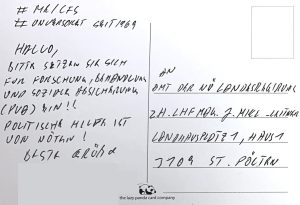 # ME/CFS
# UNVERSORGT SEIT 1969
HALLO,
BITTE SETZEN SIE SICH
FÜR FORSCHUNG, BEHANDLUNG
UND SOZIALE ABSICHERUNG
EIN!!
POLITISCHE HILFE IST
VON NÖTEN!
BESTE GRÜßE
AN
AMT DER NÖ LANDESREGIERUNG
Z.H. LHF MAG. J. MIKL-LEITNER
LANDHAUSPLATZ 1, HAUS 1
3109 ST. PÖLTEN
the lazy panda card company